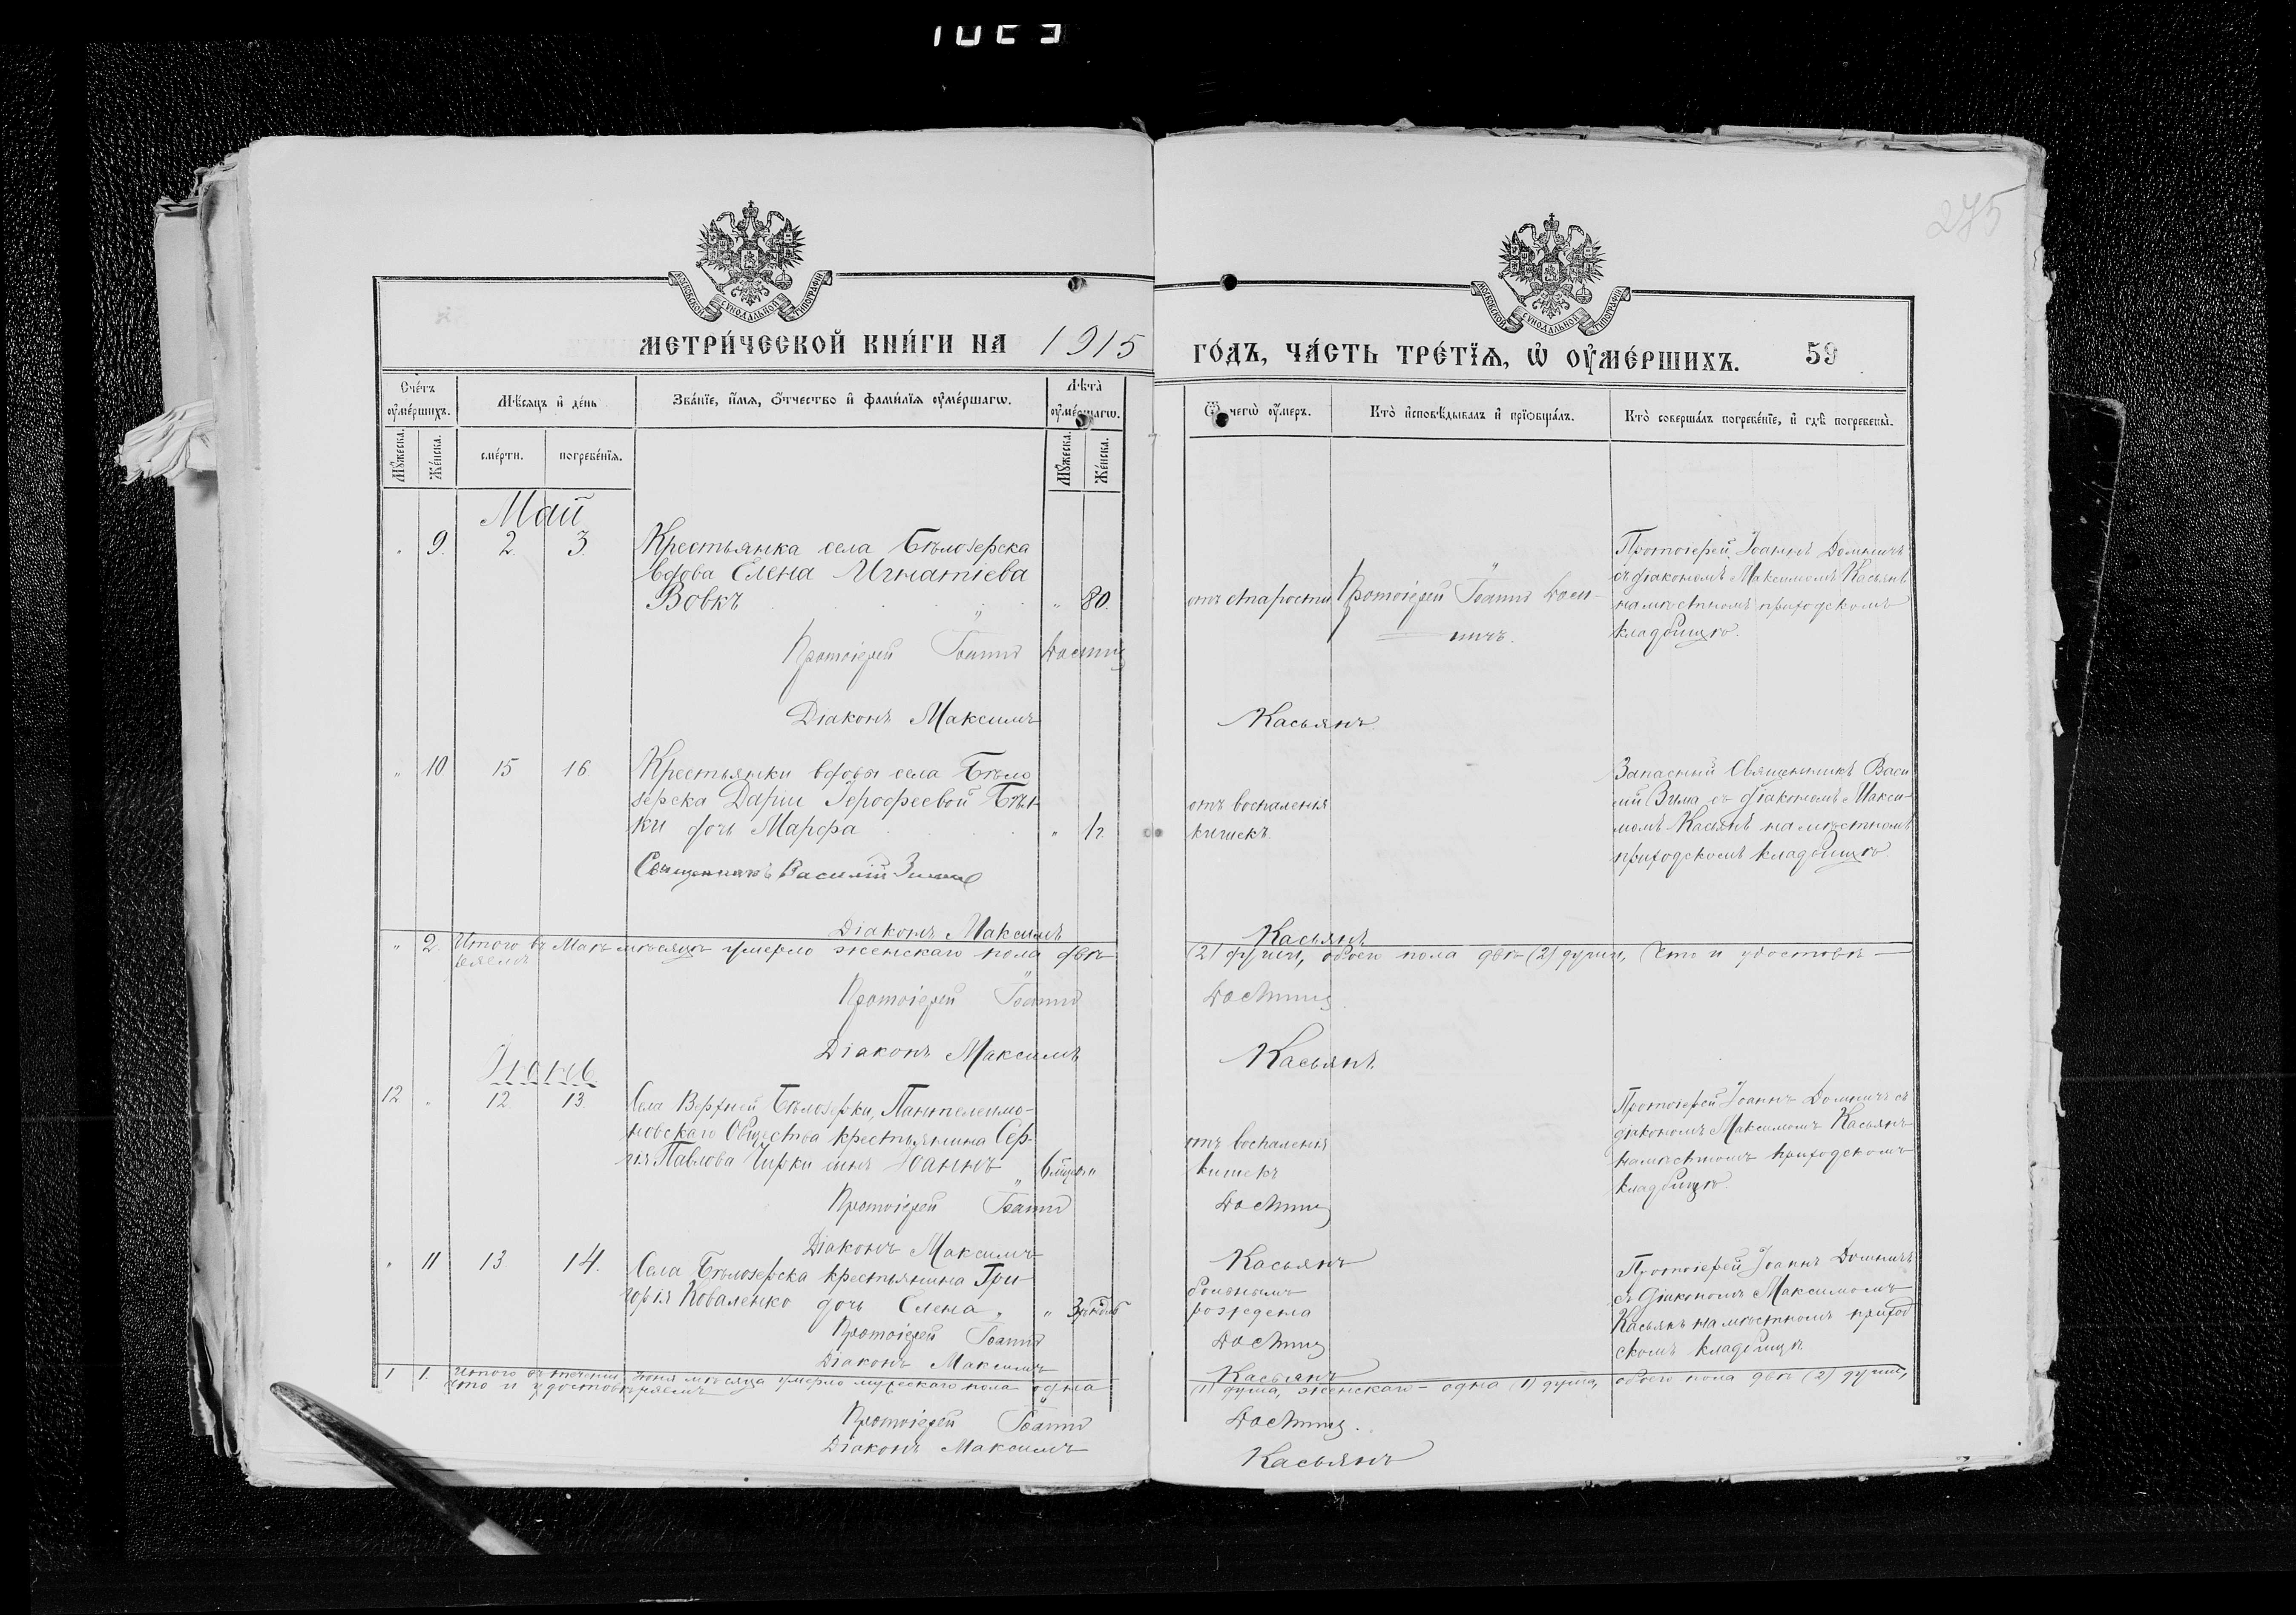 275
МОСКОВСКОЙ СѴНОДАЛЬНОЙ ТИПОГРАФІИ
МОСКОВСКОЙ СѴНОДАЛЬНОЙ ТИПОГРАФІИ
МЕТРИ́ЧЕСКОЙ КНИ́ГИ НА 1915 ГО́ДЪ, ЧА́СТЬ ТРЕ́ТЇѦ, Ѡ҆ ОУ҆МЕ́РШИХЪ. 59
Сче́тъ оу҆ме́ршихъ.
Мꙋ́жеска.
Же́нска.
Мѣ́сѧцъ и҆ де́нь
сме́рти.
погребе́нїѧ.
Зва́нїе, и҆́мѧ, ѻ҆́тчество и҆ фами́лїѧ оу҆ме́ршагѡ.
Лѣ́та оу҆ме́ршагѡ.
Мꙋ́жеска.
Же́нска.
Ѿ чегѡ̀ оу҆́меръ.
Кто̀ и҆сповѣ́дывалъ и҆ прїѡбща́лъ.
Кто̀ соверша́лъ погребе́нїе, и҆ гдѣ̀ погребены̀.
Май
" 9. 2. 3.
Крестьянка села Бѣлозерска
вдова Елена Игнатіева
Вовкъ " 80.
отъ старости
Протоіерей Іоаннъ
Протоіерей Іоаннъ
съ діакономъ Максимомъ Касьянъ
на мѣстномъ приходскомъ
кладбищѣ.
Протоіерей Іоаннъ
Діаконъ Максимъ Касьянъ.
" 10 15 16
Крестьянки вдовы села Бѣло
зерска Даріи Іерофеевой
дочь Марфа
отъ воспаленія
кишекъ.
Запасный Священникъ Васи
лій Зима съ діакономъ Макси-
момъ Касьянъ на мѣстномъ
приходскомъ кладбищѣ.
Священникъ Василій Зима
Діаконъ Максимъ Касьянъ
" 2. Итого въ Маѣ мѣсяцѣ умерло женскаго пола двѣ (2) души, обоего пола двѣ (2) души, Что и удостовѣ-
ряемъ
Протоіерей Іоаннъ
Діаконъ Максимъ Касьянъ.
Іюнь
12 " 12. 13.
Села Верхней Бѣлозерки, Пантелеимо-
новскаго Общества крестьянина Сер-
гія Павлова Чирки сынъ Іоаннъ
отъ воспаленія
кишекъ
Протоіерей Іоаннъ съ
діакономъ Максимомъ Касьянъ
на мѣстномъ приходскомъ
кладбищѣ.
Протоіерей Іоаннъ
Діаконъ Максимъ Касьянъ
" 11 13 14.
Села Бѣлозерска крестьянина Гри-
горія Коваленко дочь Елена.
рождена
Протоіерей Іоаннъ
съ Діакономъ Максимомъ
Касьянъ на мѣстномъ приход
скомъ кладбищѣ
Протоіерей Іоаннъ
Діаконъ Максимъ Касьянъ
1 1. Итого въ теченіи Іюня мѣсяца умерло мужескаго пола одна (1) душа, женскаго - одна (1) душа, обоего пола двѣ (2) души,
что и удостовѣряемъ
Протоіерей Іоаннъ
Діаконъ Максимъ Касьянъ